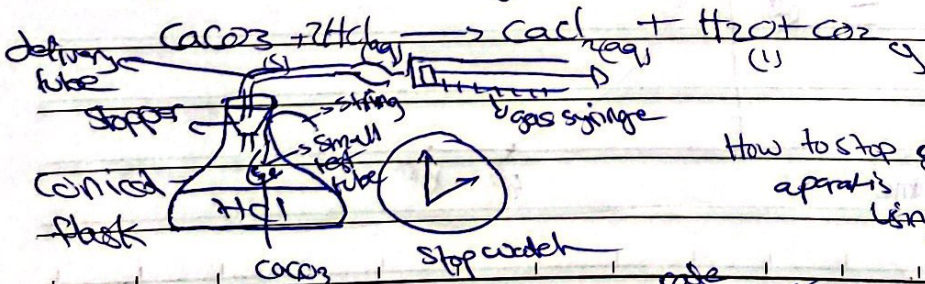 CaCO3 + 2HCl (aq) → CaCl2(aq) + H2O + CO2 g
(s) (l)
delivery tube
stopper
string
gas syringe
small test tube
conical flask
HCl
CaCO3
stop watch
How to stop
aparatis
usin
rate